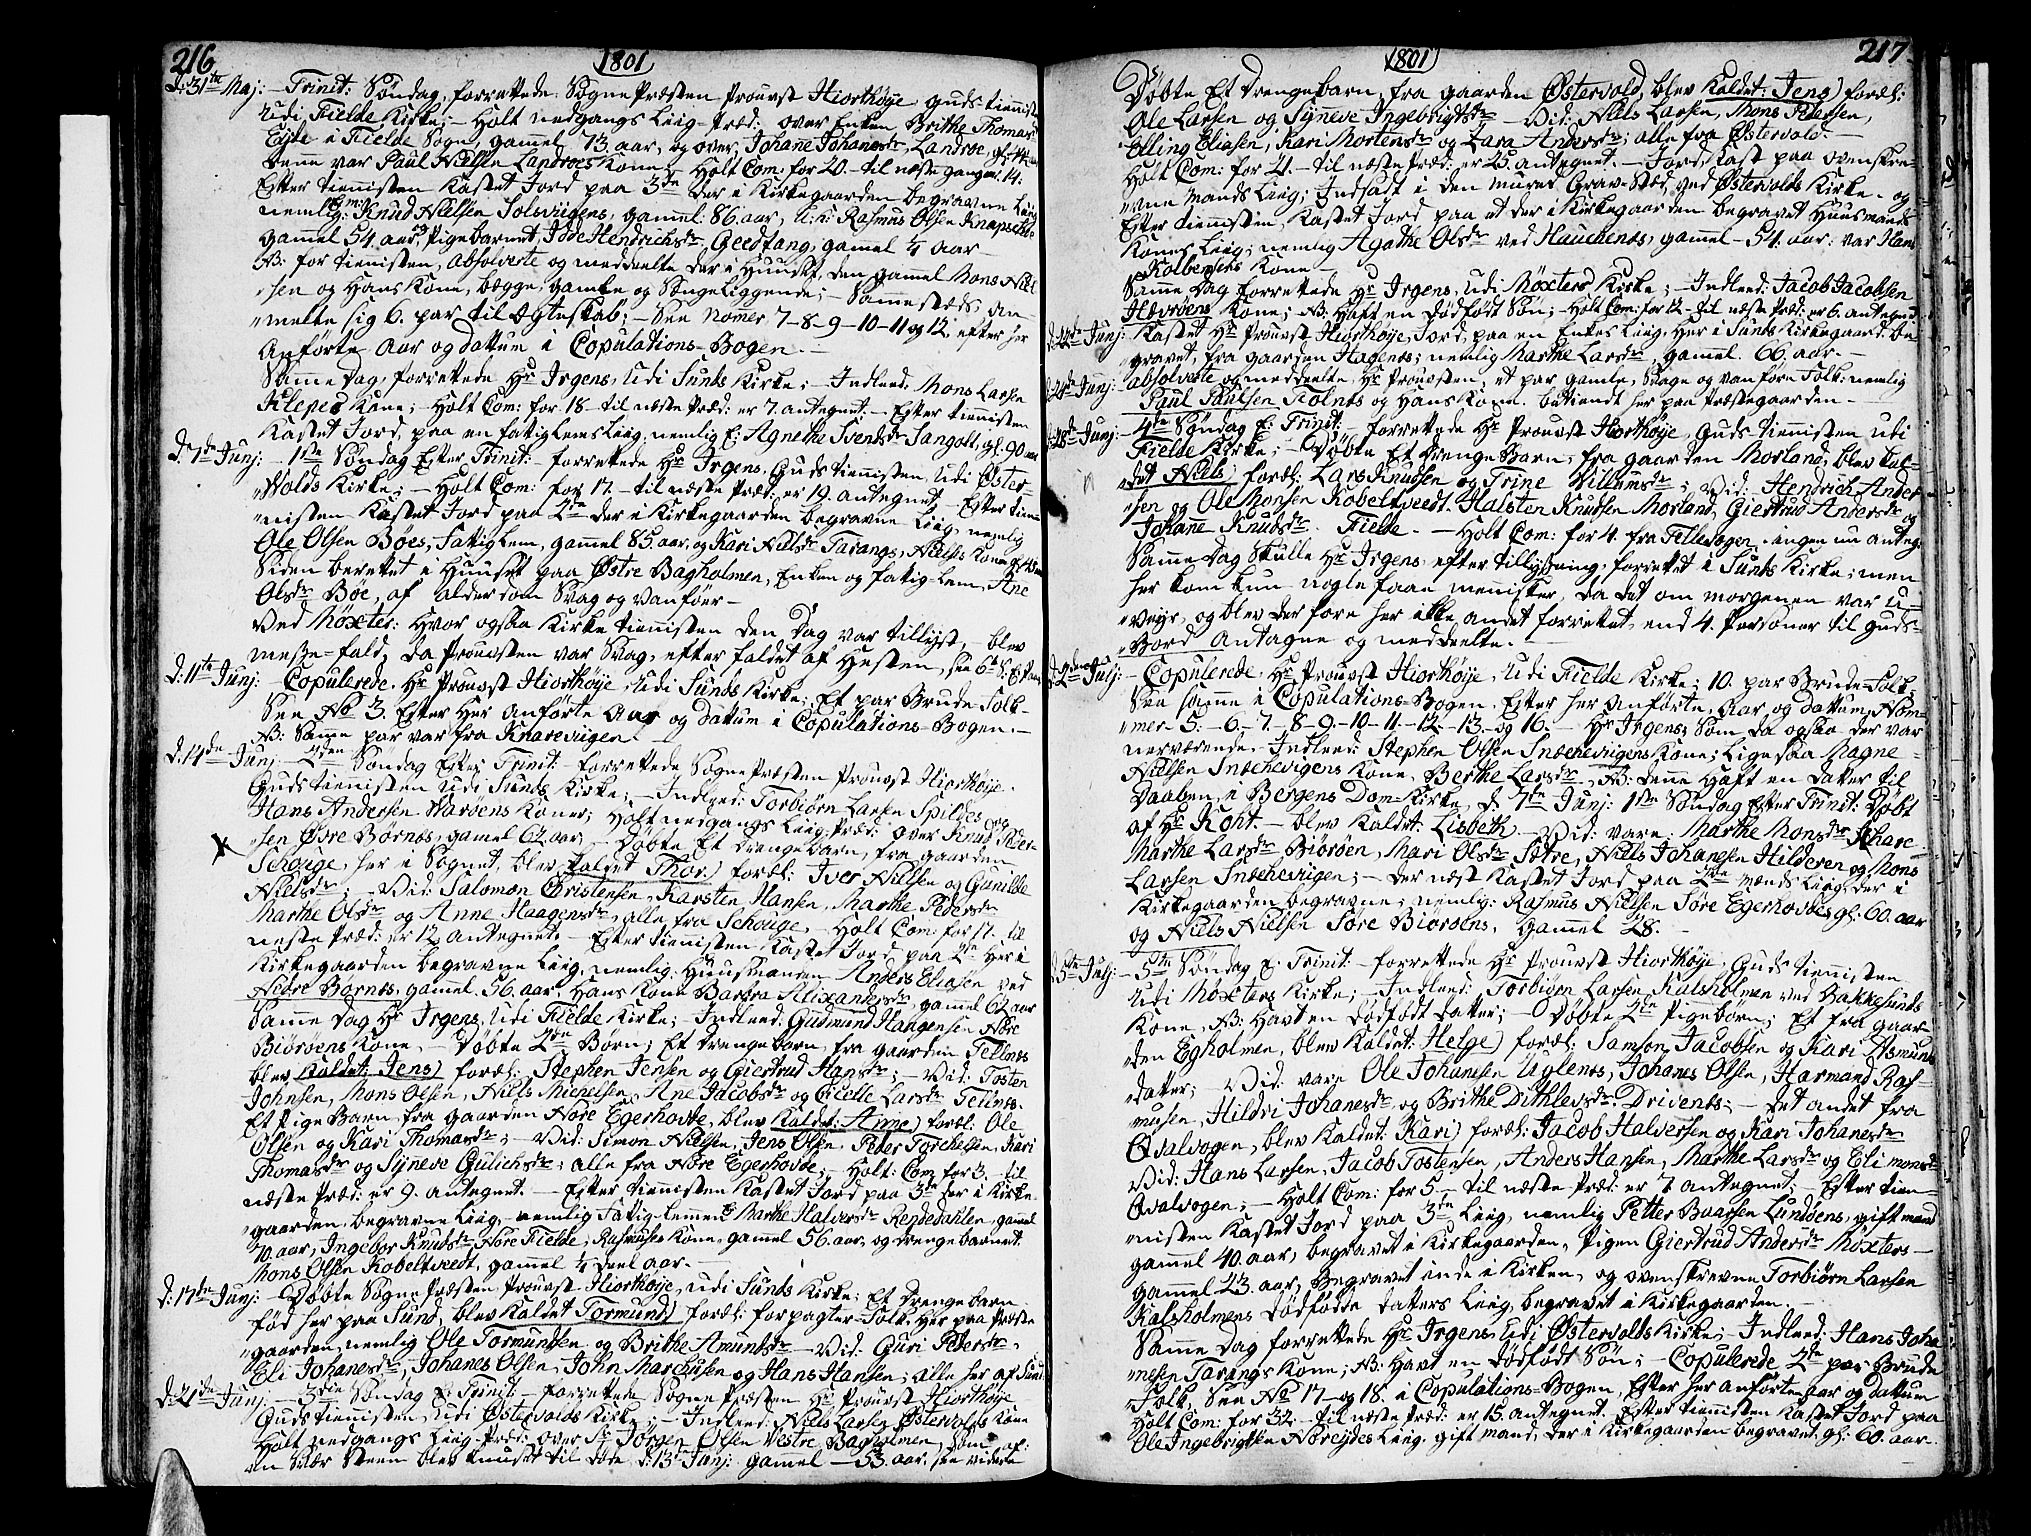 216
1801
d: 31te Maj: – Trinit: Søndag, forrettede Sogne Præsten Prouvst Hiorthøye Guds tienist
Udi Fielde Kirke; – Holt nedgangs Liig-Præd: over Enken Brithe Thomas
i Fielde Sogn, gammel 73. aar, og over, Johane Johanesdr Landroe,
denne var Paul Nielsen Landroes Kone, Holt Com: for 20. – til næste gang er 14:
Efter tienisten Kastet Jord paa 3de der i Kirkegaarden begravne Liig
nemlig: Knud Nielsen Solsviigens, gammel 86. aar, Rasmus Olsen
gammel 54. aar, Pigebarnet, Hendrichsdr Geedfang, gamel 1/4 aar –
NB: for tienisten, absolverte og meddeelte der i Huuset, den gamel Mons Niel-
sen og Hans Kone, begge gamle og Sengeliggende; – Sammestæds, an-
meldte sig 6. par til Egteskab; – See Nomer 7–8–9–10–11 og 12. efter her
Anførte Aar og dattum i Copulations-Bogen. –
Samme Dag, forrettede Hr Irgens, Udi Sunds Kirke; – Indleed: Mons Larsen
Klepes Kone; – Holt Com: for 18 – til næste Præd: er 7. antegnet: – Efter tienisten
Kastet Jord, paa en fatiglems Liig, nemlig E: Agnethe Svendsdr Sangolt, gl: 90 aar
d: 7de Junj: – 1ste Søndag Efter Trinit: – forrettede Hr Irgens, Guds tienisten, Udi Øster-
Volds Kirke; – Holt Com: for 17. – til næste Præd: er 19. antegnet – Efter tien-
nisten Kastet Jord paa 2de der i Kirkegaarden begravne Liig, nemlig
Ole Olsen Bøes, fatiglem, gammel 85. aar, og Kari Nielsdr Tarangs, Niels Kone
Siden berettet i Huuset paa Østre Bagholmen, Enken og fatig-lem, Ane
Olsdr Bøe, af alderdom Svag og Vanfør –
Ved Møxter: Hvor ogsaa Kirke tienisten den Dag var tillyst, – blev
messe-fald, da Prouvsten var Svag, efter faldet af Hesten,
d: 11te Junj: – Copulerede, Hr Prouvst Hiorthøye, Udi Sunds Kirke; Et par Brude-Folk –
See No 3. Efter Her Anførte Aar og dattum i Copulations-Bogen. –
NB: Samme par var fra Knareviigen –
d: 14de Junj – 2den Søndag Efter Trinit: – forrettede Sogne Præsten Prouvst Hiorthøye
Guds tienisten Udi Sunds Kirke; – Indleed: Torbiørn Larsen Spildes og
Hans Andersen Varøens Koner; Holt nedgangs Liig-Præd: over Knud Peder-
sen Øvre Børnes, gamel 62 aar – Døbte Et drenge barn, fra gaarden
Schouge, her i Sognet, blev Kaldet Thor) foræl: Iver Nielsen og Gunilde
Nielsdr; – Vid: Salomon Christensen, Karsten Hansen, Marthe Pedersdr
Marthe Olsdr og Anne Haagensdr, alle fra Schouge – Holt Com: for 51. – til
neste Præd: er 12 antegnet. – Efter tienisten Kastet Jord, paa 2de Her i
Kirkegaarden begravne Liig, nemlig: Huusmanden Anders Eliasen ved
Nedre Børnes, gammel 56. aar, Hans Kone Barbra Alixandersdr, gamel 62 aar
Samme dag Hr Irgens, Udi Fielde Kirke; – Indleed: Gudmund Haagensen Nore
Biørøens Kone, – Døbte 2de Børn; Et drengebarn, fra gaarden Tellnes
blev Kaldet: Jens) foræl: Stephen Jensen og Giertrud Hansdr; – Vid: Tosten
Johnsen, Mons Olsen, Niels Michelsen, Ane Jacobsdr og Cicelle Larsdr Telnes.
Et Pige Barn, fra gaarden Nore Egerhovde, blev Kaldet: Anne) foræl: Ole
Olsen og Kari Thomasdr; – Vid: Simon Nielsen, Jens Olsen, Peder Torchelsen, Kari
Thomasdr og Syneve Gulichsdr; alle fra Nore Egerhovde; – Holt: Com for 3. – til
næste Præd: er 9. antegnet. – Efter tienisten Kastet Jord paa 3de der i Kirke-
gaarden, begravne Liig, – nemlig Fatig-lemmet Marthe Halversdr Rendedahlen, gamel
70. aar, Ingebor Knudsdr Nore Fielde, Rasmuses Kone, gamel 56. aar, og drengebarnet
Mons Olsen Kobeltveedt, gamel 1/4 deel aar. –
d: 17de Junj: – Døbte Sogne Præsten Prouvst Hiorthøye, udi Sunds Kirke; Et Drengebarn
fød her paa Sund, blev Kaldet Tormund) foræl: forpagter-Folk, Her paa Præste
gaarden, nemlig Ole Tormundsen og Brithe Amundsdr – Vid: Guri Pedersdr,
Eli Johanesdr, Johanes Olsen, John Marchusen og Hans Hansen; alle her af Sund
d: 21de Junj. – 3die Søndag E: Trinit: – forrettede Sogne Præsten Hr Prouvst Hiorthøye
Guds tienisten, Udi Østervolds Kirke; – Indleed: Niels Larsen Østervolds Kone
Holt nedgangs Liig-Præd: over Sr Jørgen Olsen Vestre Bagholmen, Som af:
en Svær Steen blev knuset til døde d: 13de Junj: gamel – 53. aar, see videre
1801
217
Døbte Et drengebarn, fra gaarden Østervold, blev Kaldet: Jens) foræl:
Ole Larsen og Syneve Ingebrigtsdr – Vid: Niels Larsen, Mons Pedersen,
Elling Eliasen, Kari Mortensdr og Lara Andersdr; alle fra Østervold. –
Holt Com: for 21. – til næste Præd: er 25. antegnet. – Jord, Kast paa ovenskre-
vne mands Liig; Indsadt i den murede Grav-Stæd, ved Østervolds Kirke – og
Efter tienisten, Kastet Jord paa et der i Kirkegaarden begravet Huusmands
Kones Liig; nemlig Agathe Olsdr ved Hauchenes, gammel – 54. aar: var Hans
Kolbensens Kone –
Samme Dag forrettede Hr Irgens, Udi Møxters Kirke; – Indleed: Jacob Jacobsen
Kone; NB: Haft en Dødfødt Søn; – Holt Com: for 12. – til næste Præd: er 6. antegnet
d: 22de Junj: Kastet Hr Prouvst Hiorthøye, Jord, paa en Enkes Liig, Her i Sunds Kirkegaard be-
gravet, fra gaarden Hagenes; nemlig Marthe Larsdr, gammel 66. aar. –
d: 24de Junj: absolverte og meddeelte, Hr Prouvsten, et par gamle, Svage og vanføre Folk: nemlig
Paul Paulsen Tolnes og Hans Kone. betient her paa Præstegaarden –
d: 28de Junj: – 4de Søndag E: Trinit: – forrettede Hr Prouvst Hiorthøye, Guds tienisten udi
Fielde Kirke; – Døbte Et drenge Barn, fra gaarden Morland, blev Kal-
det Niels) foræl: Lars Knudsen og Trine Villumsdr; Vid: Hendrich Ander-
sen og Ole Monsen Kobeltveedt. Halsten Knudsen Morland, Giertrud Andersdr og
Johane Knudsdr. Fielde. – Holt Com: for 4. fra Tellevogen – ingen nu anteg:
Samme Dag skulle Hr Irgens, efter tillysning, forrettet i Sunds Kirke; men
her kom kun nogle faae menisker, da det om morgenen var U-
veyr, og blev der fore her ikke andet forrettet, end 4. Personer til Guds-
Bord Antagne og meddeelte. –
d: 2den Julj: – Copulerede, Hr Prouvst Hiorthøye, Udi Fielde Kirke; 10. par Brude-Folk.
See samme i Copulations-Bogen, Efter her Anførte, Aar og dattum, Nom-
mer – 5. – 6. – 7 – 8 – 9. – 10. – 11. – 12. – 13. og 16. – Hr Irgens, Som da ogsaa der var
nerværende – Indleed: Stephen Olsen Snechevigens Kone; Ligesaa Magne
Nielsen Snechevigens Kone, Berthe Larsdr. NB: denne Haft en datter til
Daaben, i Bergens Dom-Kirke, d: 7de Junj: 1ste Søndag Efter Trinit: Døbt
af Hr Koht. – blev Kaldet: Lisbeth – Vid: vare: Marthe Monsdr
Marthe Larsdr Biørøen, Mari Olsdr Sotre, Niels Johanesen Hilderen og Mons
Larsen Snechevigen; – Der næst Kastet Jord paa 2de Mænds Liig, der i
Kirkegaarden begravne; nemlig: Rasmus Nielsen Søre Egerhovdes, gl: 60. aar
og Niels Nielsen Søre Biørøens, gammel 28. –
d: 5te Julj – 5te Søndag E: Trinit: – forrettede Hr Prouvst Hiorthøye, Guds tienisten
Udi Møxters Kirke; – Indleed: Torbiørn Larsen Kalsholmen ved Bakkesunds
Kone, NB: Havt en Dødfødt Datter; – Døbte 2de Pigebørn; Et fra gaar-
den Egholmen, blev Kaldet: Helge) foræl: Samson Jacobsen og Kari Asmunds
datter; – Vid: vare Ole Johanesen Uglenes, Johanes Olsen, Harmand Ras-
musen, Hildri Johanesdr og Brithe Dithlevsdr Drivenes; – Det andet fra
Qvalvogen, blev Kaldet: Kari) foræl: Jacob Halversen og Kari Johanesdr
Vid: Hans Larsen, Jacob Tostensen, Anders Hansen, Marthe Larsdr og Eli Monsdr
Qvalvogen; – Holt Com: for 5. – til næste Præd: er 7. antegnet; – Efter tien-
nisten Kastet Jord paa 3de Liig, nemlig Petter Baarsen Lundens, gift mand
gammel 40. aar, begravet i Kirkegaarden, Pigen Giertrud Andersdr Møxters –
gammel 23. aar, Begravet inde i Kirken, og ovenskrevne Torbiørn Larsen
Kalsholmens dødfødde datters Liig, begravet i Kirkegaarden. –
Samme Dag forrettede Hr Irgens, Udi Østervolds Kirke; – Indleed: Hans Joha-
nesen Tarangs Kone; NB: Havt en Dødfødt Søn; – Copulerede 2de par Brude
Folk, See No 17 – og 18. i Copulations-Bogen, Efter her anførte aar og dattum
Holt Com: for 32 – til næste Præd: er 15. antegnet. Efter tienisten Kastet Jord paa
Ole Ingebrigtsen Noreydes Liig. gift mand, der i Kirkegaarden begravet, gl: 60. aar –